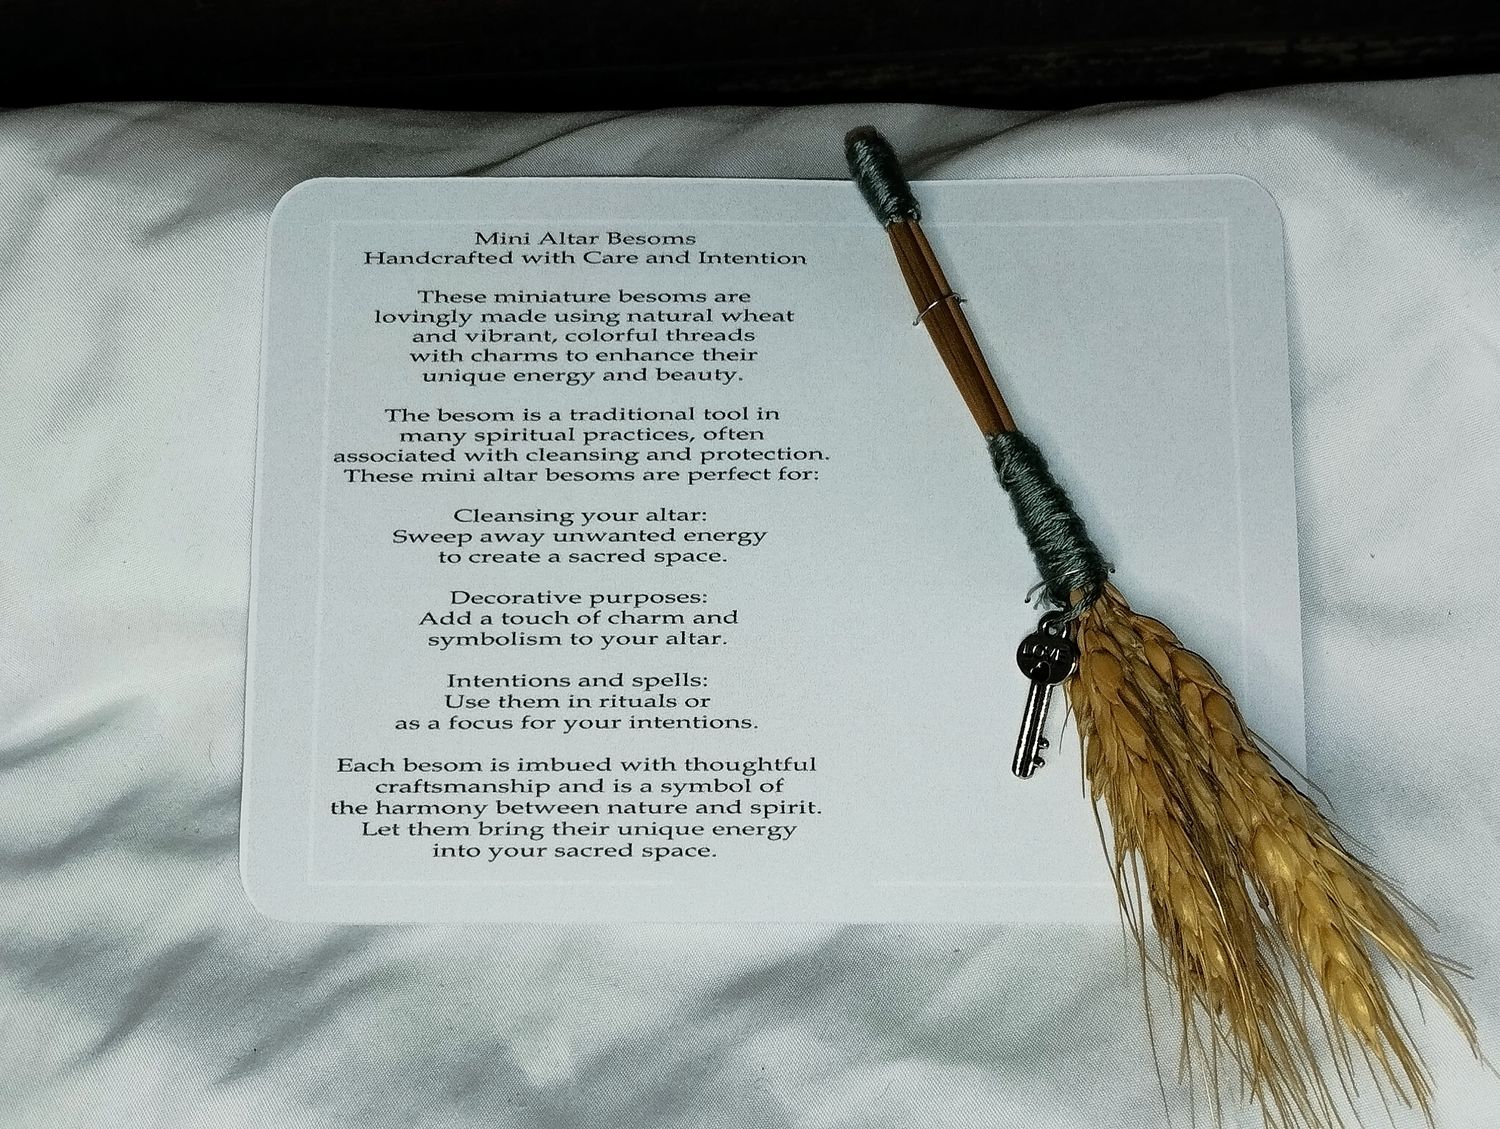 Mini Altar Besoms
Handcrafted with Care and Intention
These miniature besoms are
lovingly made using natural wheat
and vibrant, colorful threads
with charms to enhance their
unique energy and beauty.
The besom is a traditional tool in
many spiritual practices, often
associated with cleansing and protection.
These mini altar besoms are perfect for:
Cleansing your altar:
Sweep away unwanted energy
to create a sacred space.
Decorative purposes:
Add a touch of charm and
symbolism to your altar.
Intentions and spells:
Use them in rituals or
as a focus for your intentions.
Each besom is imbued with thoughtful
craftsmanship and is a symbol of
the harmony between nature and spirit.
Let them bring their unique energy
into your sacred space.
LOVE